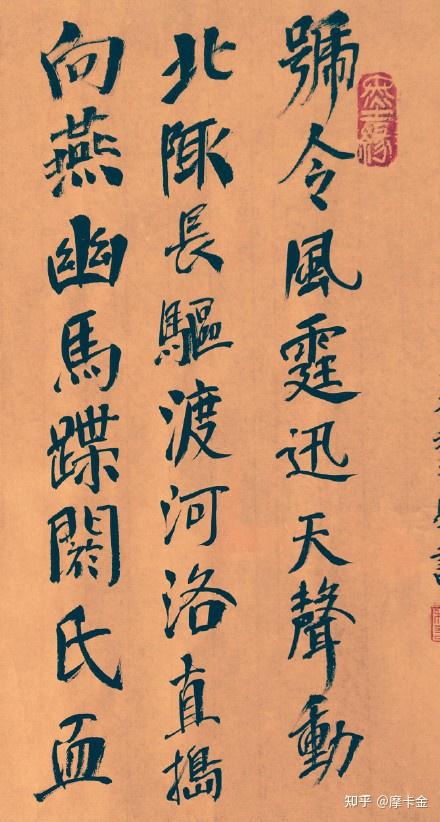 號令風霆迅天聲動
北陬長驅渡河洛直搗
向燕幽馬蹀閼氏血
知乎 @摩卡金